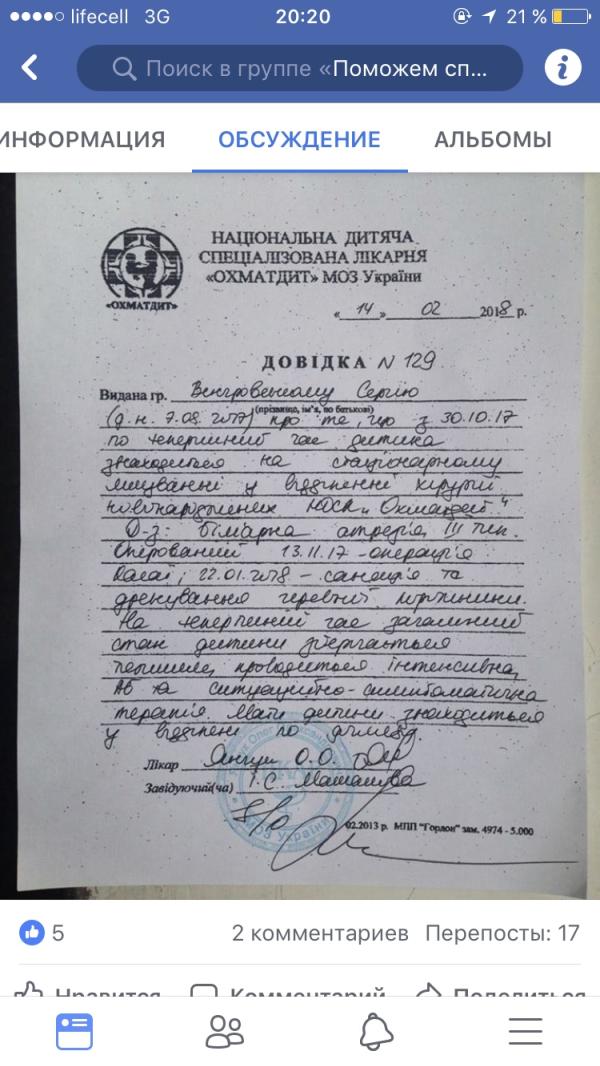 lifecell 3G 20:20 21 %
Поиск в группе «Поможем сп...
ИНФОРМАЦИЯ ОБСУЖДЕНИЕ АЛЬБОМЫ
НАЦІОНАЛЬНА ДИТЯЧА
СПЕЦІАЛІЗОВАНА ЛІКАРНЯ
«ОХМАТДИТ» МОЗ України
«ОХМАТДИТ»
« 14 » 02 2018 р.
ДОВІДКА N 129
Видана гр. Венгровському Сергію
(прізвище, ім'я, по батькові)
(д.н. 7.08.2017) про те, що з 30.10.17
по теперішній час дитина
знаходиться на стаціонарному
лікуванні у відділенні хірургії
новонароджених НДСЛ „Охматдит"
D-з: біліарна атрезія, III тип.
Оперований 13.11.17 - операція
Касаї; 22.01.2018 - санація та
дренування черевної порожнини.
На теперішній час загальний
стан дитини зберігається
тяжким, проводиться інтенсивна,
АБ та ситуаційно-симптоматична
терапія. Мати дитини знаходиться
у відділенні по догляду.
Лікар О.О.
Завідуючий(ча) І.С.
МОЗ України
02.2013 р. МПП "Горлон" зам. 4974 - 5.000
5 2 комментариев Перепосты: 17
Нравится Комментарий Поделиться